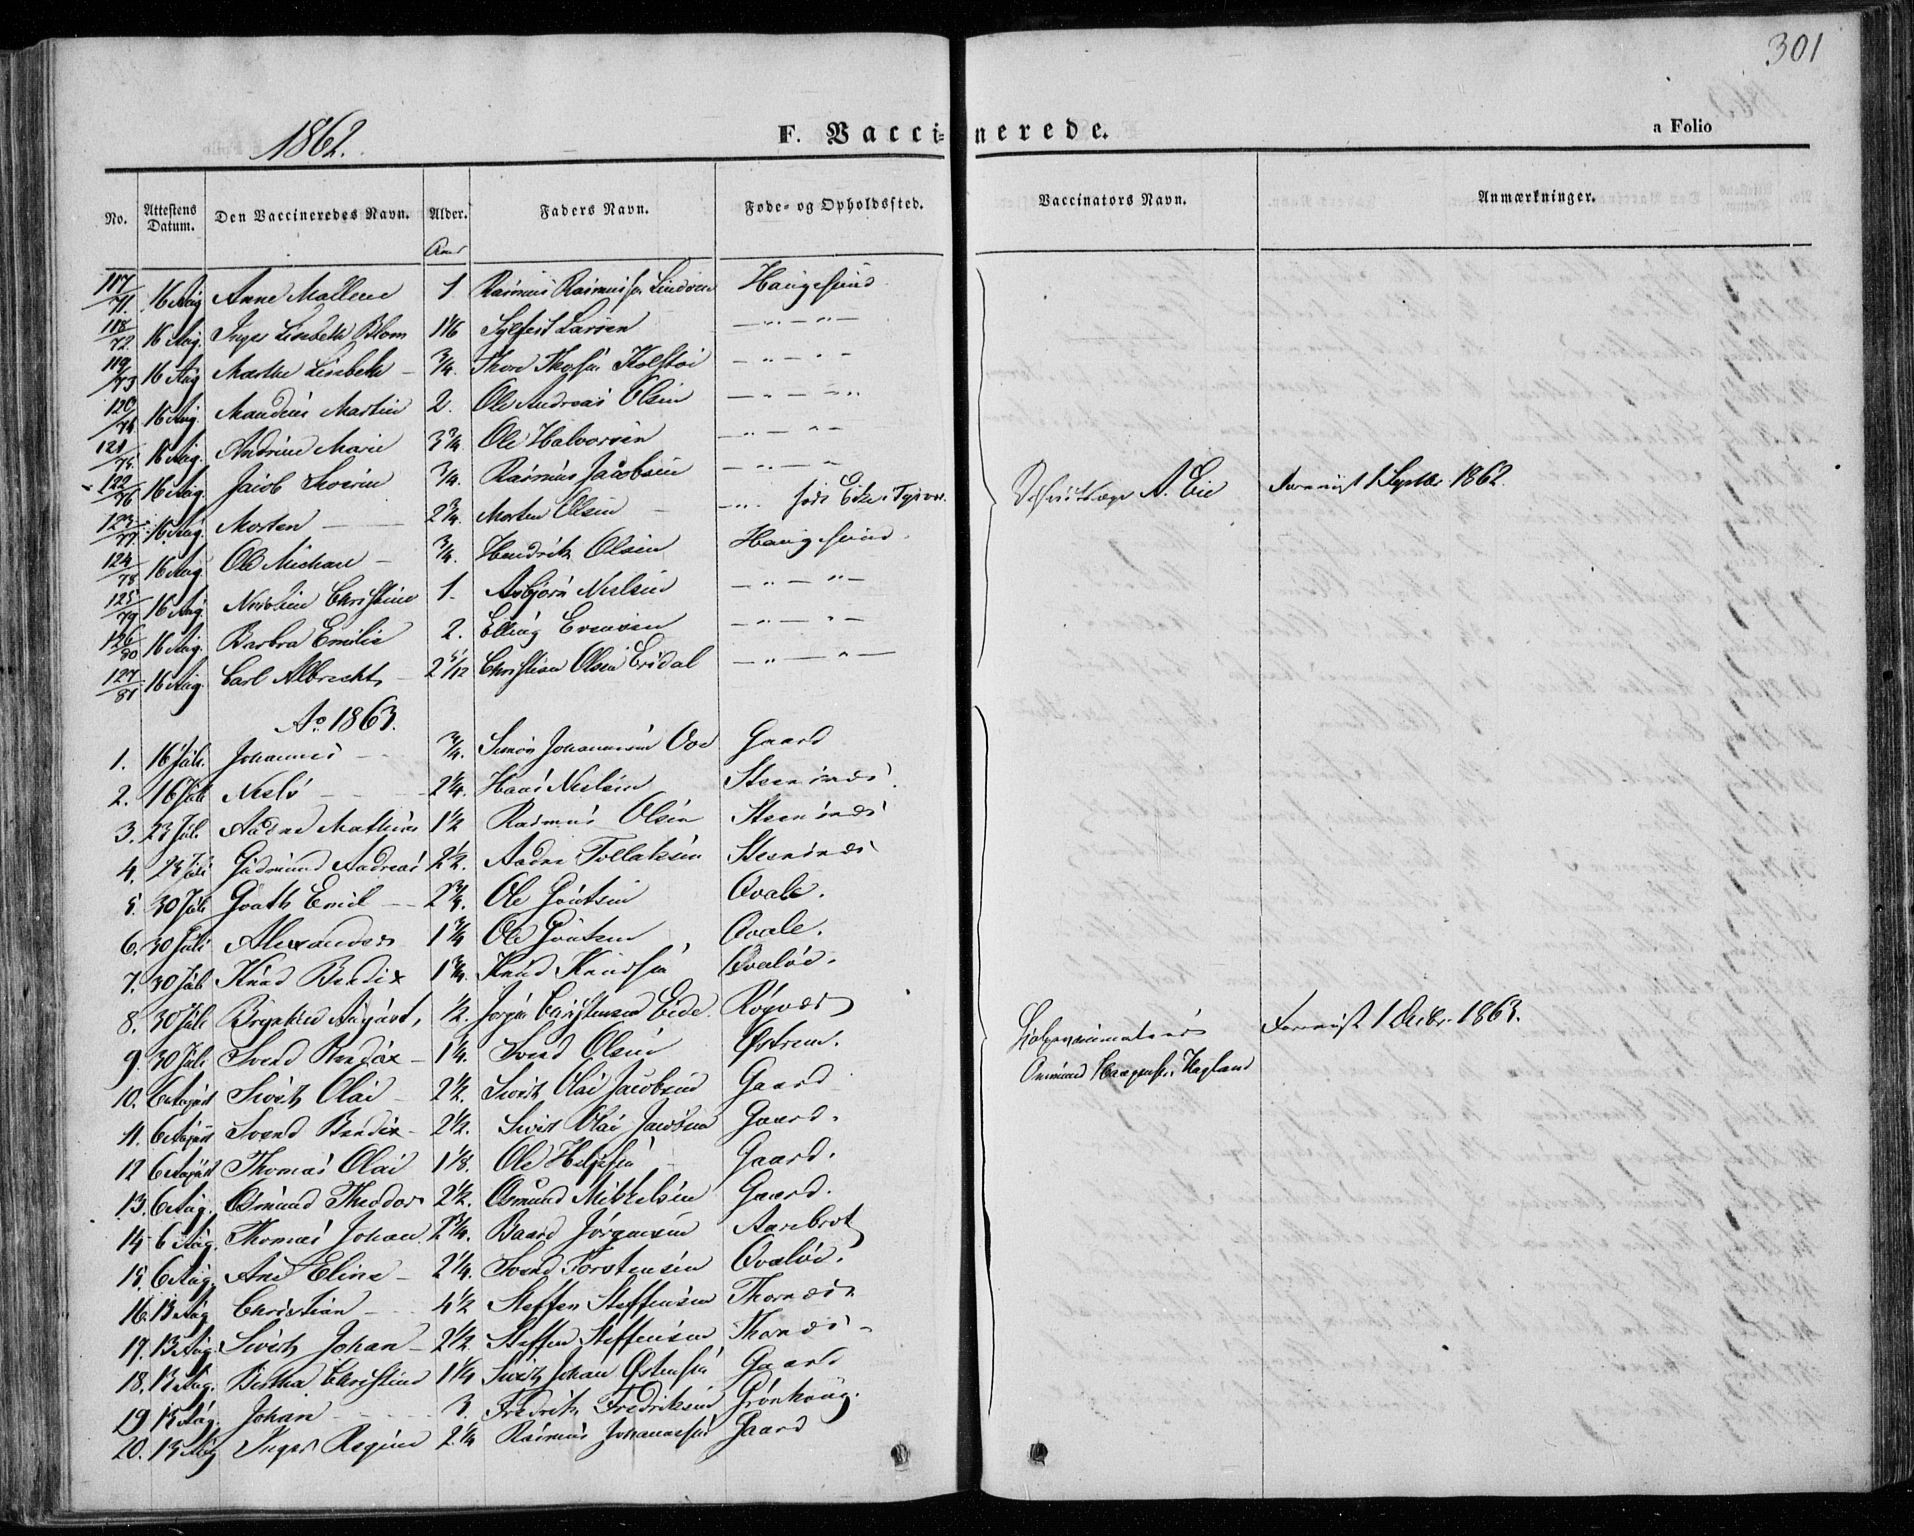 301
1862.
F. Vaccinerede.
a Folio
No. Attestens Datum. Den Vaccineredes Navn. Alder. Faders Navn. Føde- og Opholdssted. Vaccinators Navn. Anmærkninger.
Aar
117/71. 16 Aug Anne Mallene 1 Rasmus Rasmussen Haugesund
118/72. 16 Aug. Inger Lisebeth Blom 1 1/6 Sylfest Larsen — " — " —
119/73 16 Aug Marthe Lisebeth — 3/4. Thore Kolstøe — " — " —
120/74 16 Aug. Martin 2. Ole Andreas Olsen — " — " —
121/75. 16 Aug. Andrine Marie 3 3/4. Ole Halvorsen — " — " —
122/76 16 Aug. Jacob Severin 3/4. Rasmus Jacobsen — " — " —
123/77. 16 Aug. Morten — 2 3/4. Morten Olsen — — " . født
124/78 16 Aug. Ole Michael — 3/4. Hendrik Olsen Haugesund.
125/79 16 Aug Christine 1. Asbjørn Nielsen — " — " —
126/80 16 Aug. Barbra Emilie 2. Elling Evensen — " — " —
127/81 16 Aug. Carl Albrecht — 2 5/12 Christian Olsen — " — " —
A. Eie 1 Septbr 1862.
Ao 1863.
1. 16 Juli. Johannes — 3/4. Simon Johannesen Gaard
2. 16 Juli Niels — 2 1/4. Hans Nielsen Steensnæs
3. 23 Juli Aadne Mathias 1 1/2 Rasmus Olsen Steensnæs
4. 23 Juli Gudmund Andreas 2 1/2. Aadne Tollaksen Steensnæs
5. 30 Juli Emil — 2 3/4. Ole Qvale.
6. 30 Juli Alexander 1 3/4 Ole Qvale.
7. 30 Juli Knud Bendix 1 3/4. Knud Knudsen Qvaløe.
8. 30 Juli August, 1/2. Jørgen Christensen Eide. Røgvær
9. 30 Juli Svend Bendix — 1 1/4. Svend Olsen Østrem.
10. 6 August Sivert Olai — 2 1/2. Sivert Olai Jacobsen Gaard
11. 6 August Svend Bendix — 2 1/2. Sivert Olai Jacobsen Gaard.
12 6 August Thomas Olai 1 1/8. Ole Gaard.
13. 6 Aug. Osmund Theodor 2 1/2. Osmund Mikkelsen Gaard.
14 6 Aug. Thomas Johan 2 3/4. Baard Jørgensen Aarebrot
15. 6 Aug. Ane Eline — 2 1/4. Svend Torstensen Qvaløe.
16. 13 Aug Christian — 4 1/2 Steffen Steffensen Thornæs
17. 13 Aug. Sivert Johan — 2 1/2 Steffen Steffensen Thornæs
18. 13 Aug. Bertha Christine 1 1/4 Sivert Johan Østensen Gaard
19. 13 Aug. Johan — 3. Fredrik Fredriksen Grønhaug.
20. 13 Aug Inger Regine 2 1/4 Rasmus Johannessen Gaard
1 Decbr. 1863.
Hagland